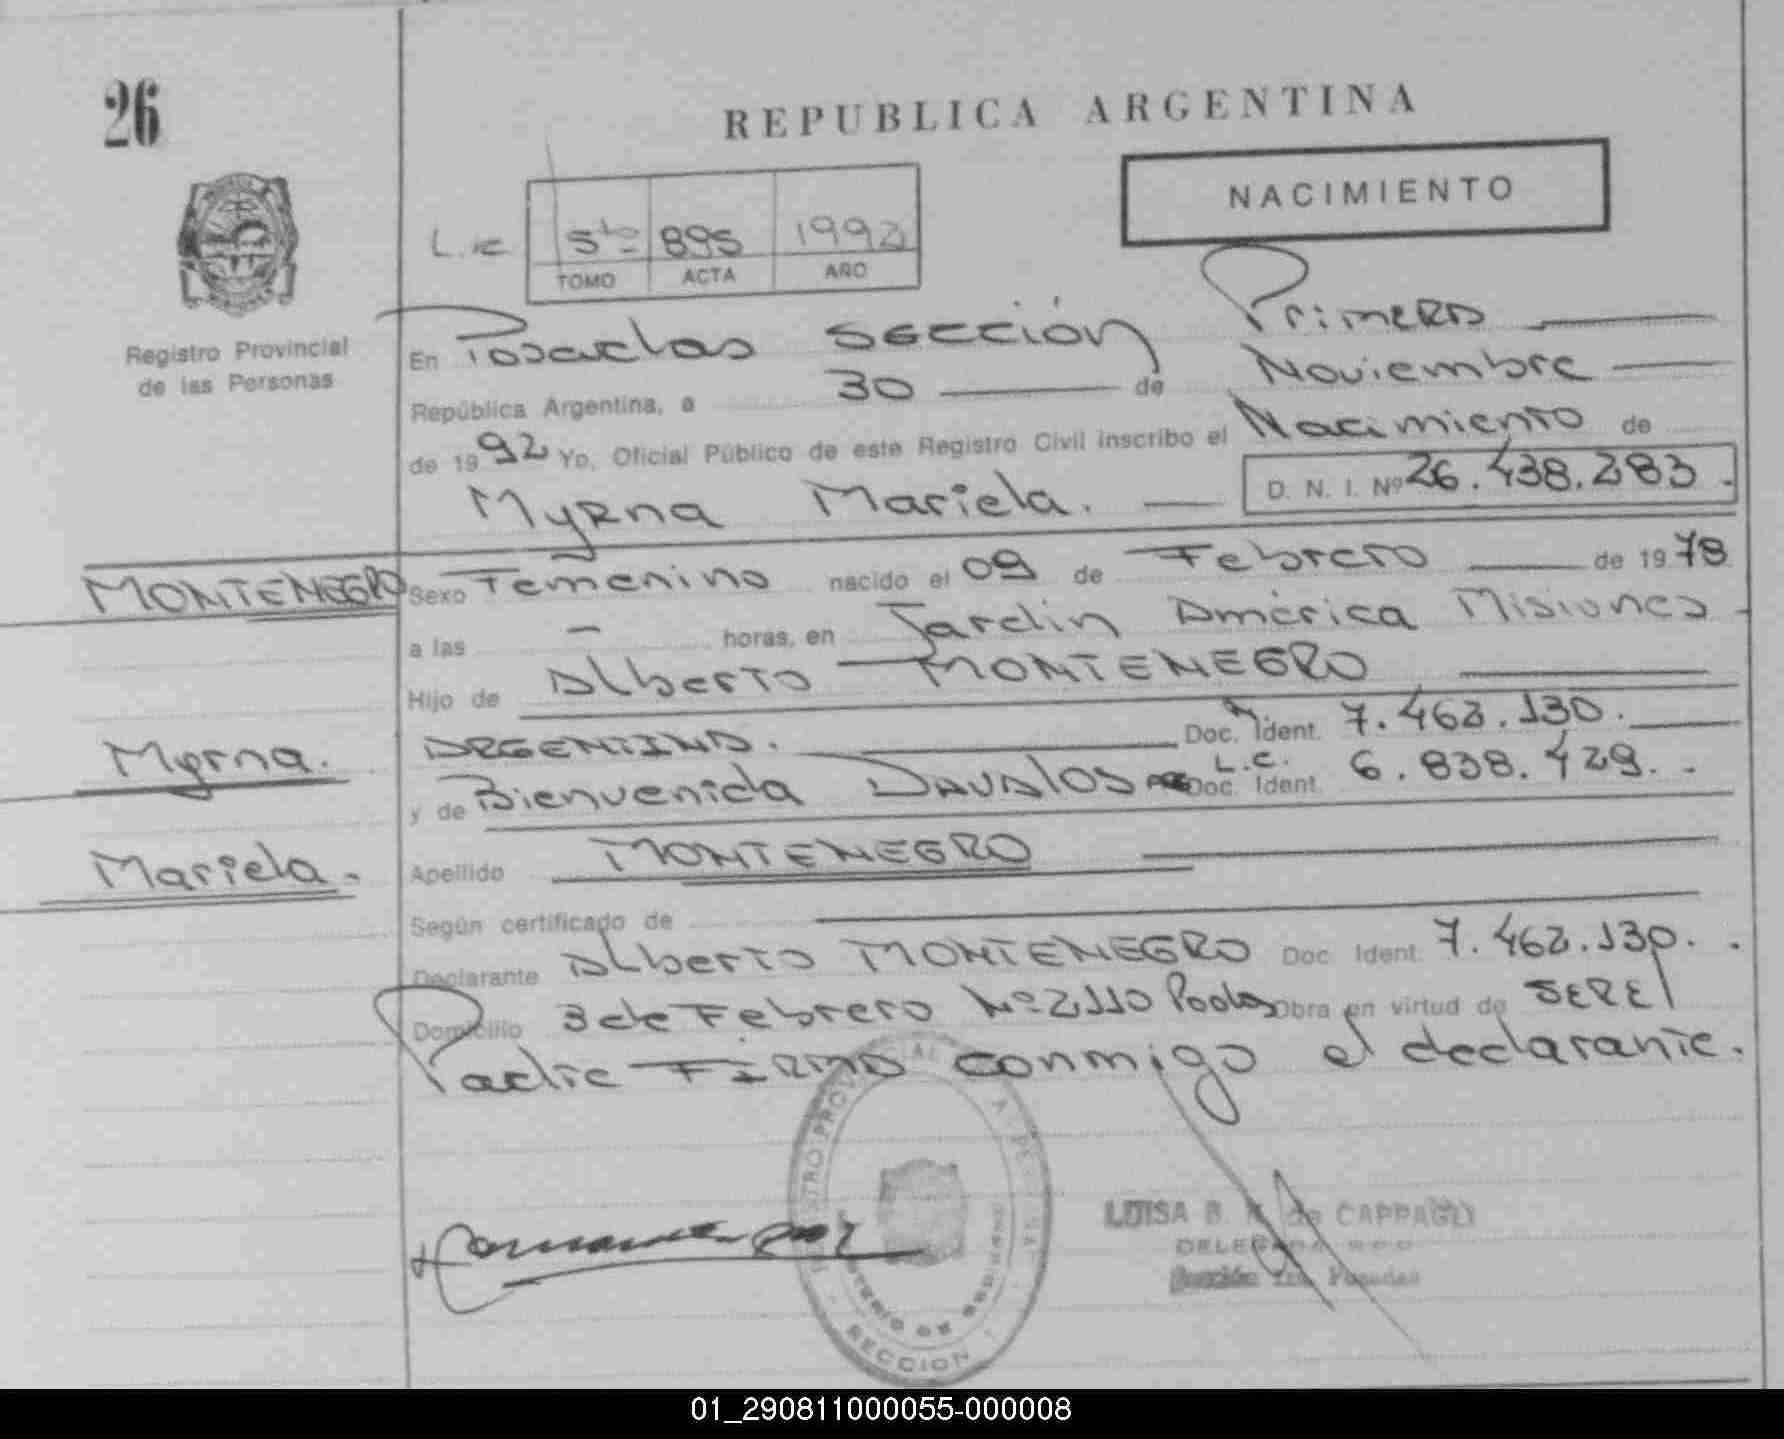 26
REPUBLICA ARGENTINA
NACIMIENTO
Registro Provincial
de las Personas
5to 895 1992
TOMO ACTA AÑO
En Posadas Sección Primera
República Argentina, a 30 de Noviembre
de 1992 Yo, Oficial Público de este Registro Civil inscribo el Nacimiento de
Myrna Mariela. D. N. I. Nº 26.438.283.
MONTENEGRO
Sexo Femenino nacido el 09 de Febrero de 1978
a las - horas, en Jardin América Misiones
Hijo de Alberto MONTENEGRO
ARGENTINA. Doc. Ident. 7.462.130.
Myrna.
y de Bienvenida DAVALOS L.C. Doc. Ident. 6.838.429.
Mariela.
Apellido MONTENEGRO
Según certificado de
Declarante Alberto MONTENEGRO Doc. Ident. 7.462.130.
Domicilio 3 de Febrero Nº 2110 Pdas Obra en virtud de SER El
Padre FIRMA conmigo el declarante.
LUISA B. de CAPPAGLI
DELEGADA
Sección 1ra. Posadas
SECCION
01_290811000055-000008